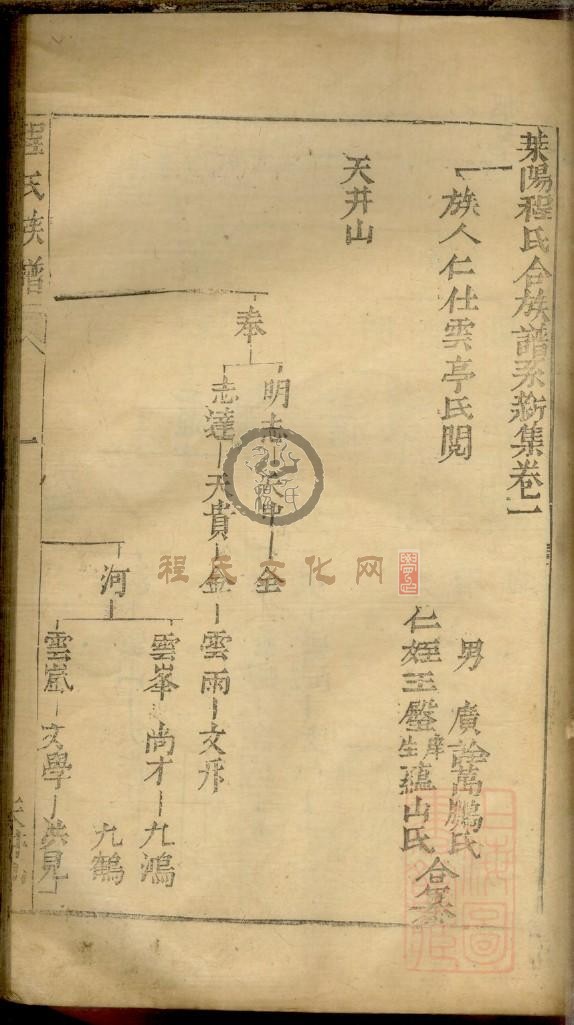 萊陽程氏合族譜系新集卷二
族人仁仕雲亭氏閲
男 廣諭萬鵬氏
仁姪王鑒庠生蘊山氏 合纂
天井山
奉
明志
志達 天貴 金 雲雨 文升
全
河
雲峯 尚才 九鴻
九鶴
雲嵐 文學 洪見
程氏族譜
程氏文化网